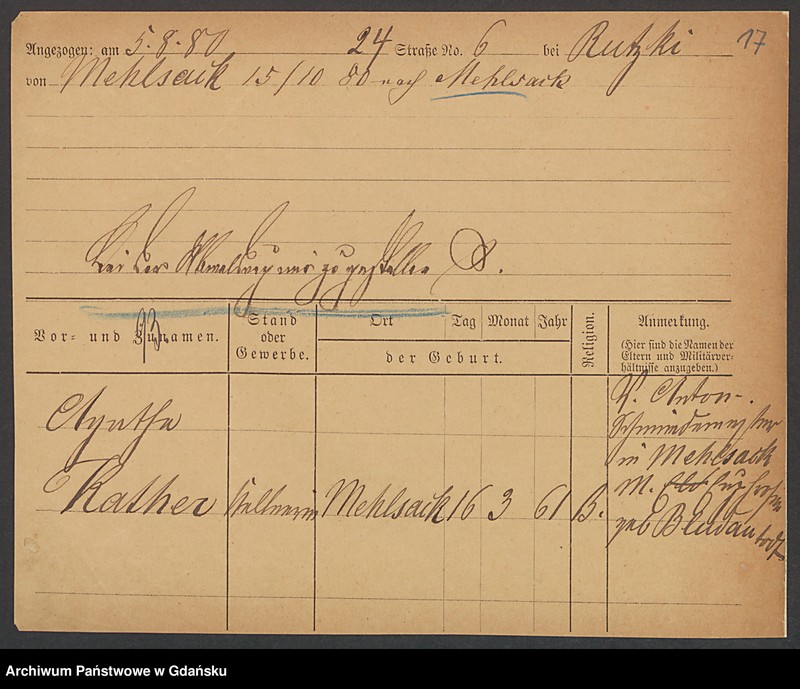 Angezogen: am 5.8.80 24 Straße No. 6 bei Rutzki 17
von Mehlsack 15/10 80 nach Mehlsack
Bei der Abmeldung mir zu gestellen
Vor- und Zunamen. Stand oder Gewerbe. Ort Tag Monat Jahr der Geburt. Religion. Anmerkung.
(Hier sind die Namen der Eltern und Militärverhältnisse anzugeben.)
Agatha
Kather Kellnerin Mehlsack 16 3 61
V. Anton
Schmiedemeister
in Mehlsack
M.
geb Bludau
todt
Archiwum Państwowe w Gdańsku